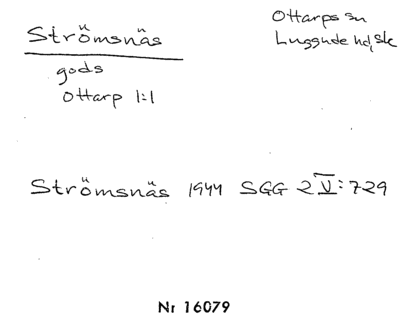 Strömsnäs
gods
Ottarp 1:1
Ottarps sn
Luggude hd, Sk
Strömsnäs 1944 SGG 2 V: 729
Nr 16079